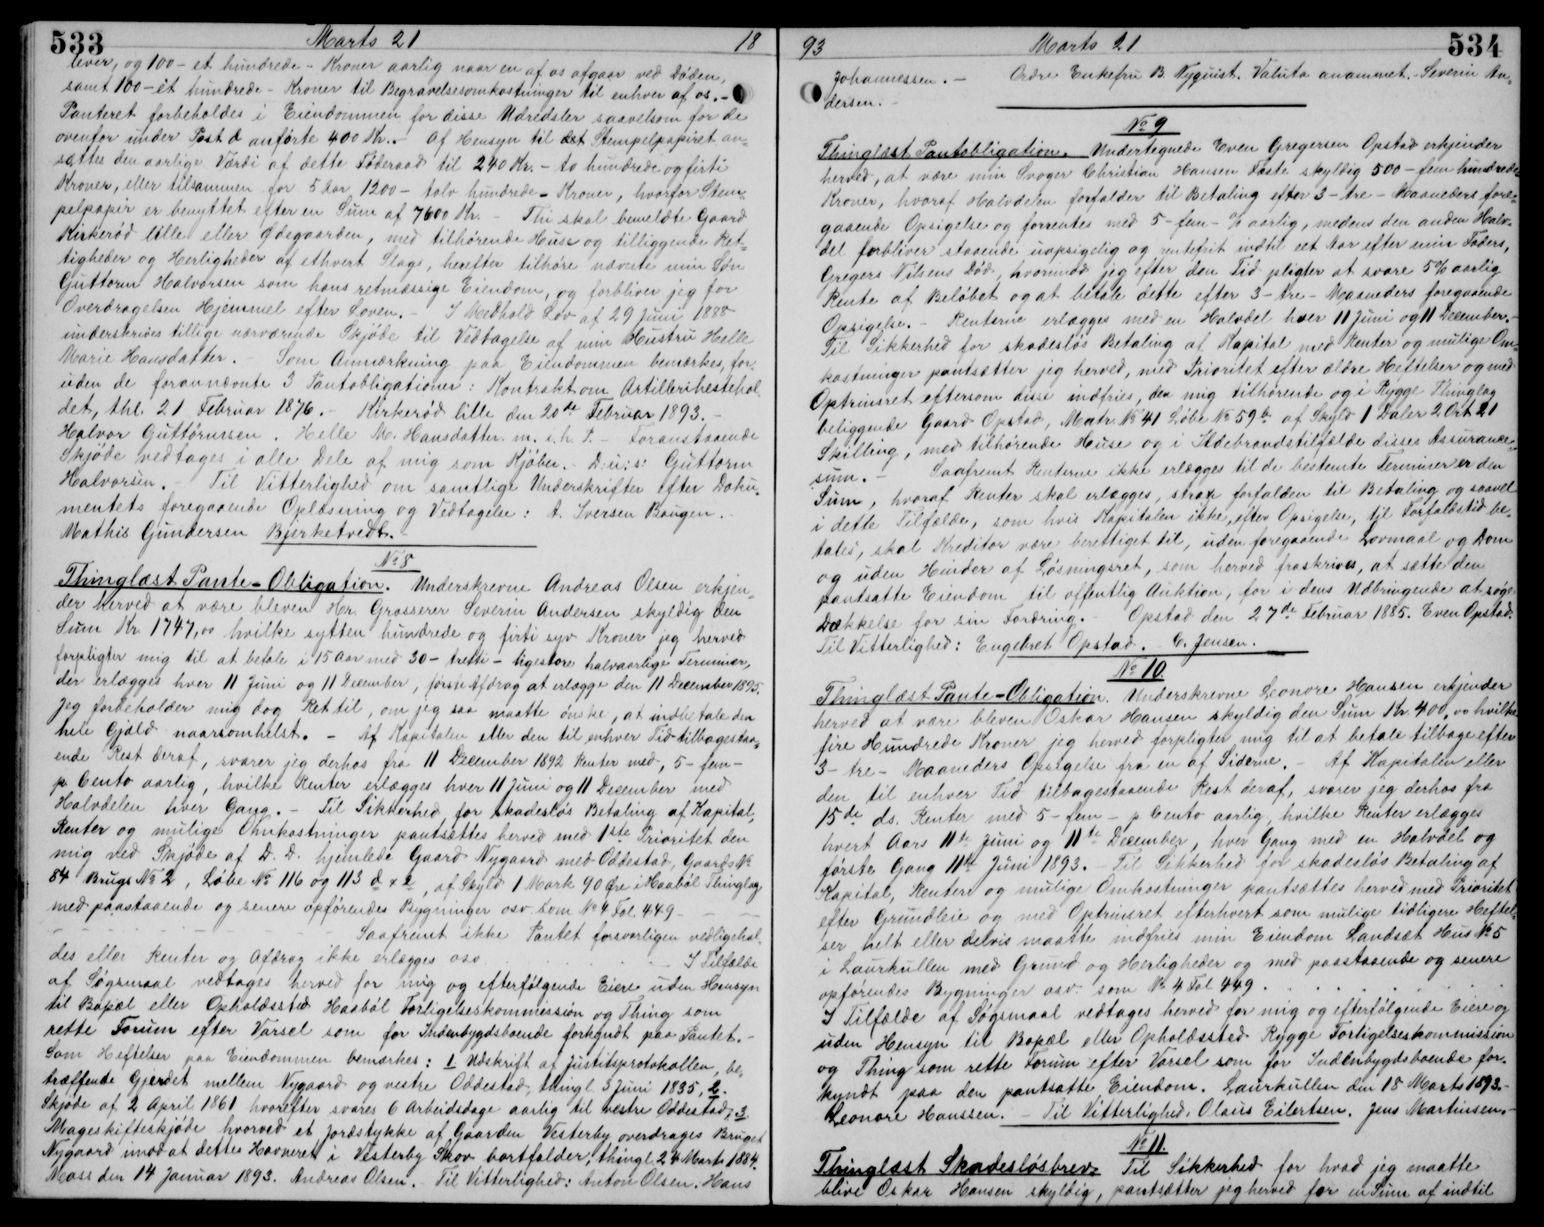 533 Marts 21 18
lever, og 100 - et hundrede - Kroner aarlig naar en af os afgaar ved Døden,
samt 100 - et hundrede - Kroner til Begravelsesomkostninger til enhver af os. -
Panteret forbeholdes i Eiendommen for disse Udredsler saavelsom for de
ovenfor under Post d anførte 400 Kr. - Af Hensyn til det Stempelpapiret an-
sættes den aarlige Værdi af dette Føderaad til 240 Kr. - to hundrede og firti
Kroner, eller tilsammen for 5 Aar 1200 - tolv hundrede - Kroner, hvorfor Stem-
pelpapir er benyttet efter en Sum af 7600 Kr. - Thi skal bemeldte Gaard
Kirkerød lille eller Ødegaarden, med tilhørende Huse og tilliggende Ret-
tigheder og Herligheder af ethvert Slags, herefter tilhøre nævnte min Søn
Guttorm Halvorsen som hans retmæssige Eiendom, og forbliver jeg for
Overdragelsen Hjemmel efter Loven. - I Medhold Lov af 29 Juni 1888
underskrives tillige nærværende Skjøde til Vedtagelse af min Hustru Helle
Marie Hansdatter. - Som Anmærkning paa Eiendommen bemærkes, for-
uden de forannævnte 3 Pantobligationer: Kontrakt om Artillerihestehol-
det, thl. 21 Februar 1876. - Kirkerød lille den 20de Februar 1893. -
Halvor Guttormsen. Helle M. Hansdatter. m. i. h. P. - Foranstaaende
Skjøde vedtages i alle Dele af mig som Kjøber. - D: u: s: Guttorm
Halvorsen. - Til Vitterlighed om samtlige Underskrifter efter Doku-
mentets foregaaende Oplæsning og Vedtagelse: A. Iversen Baugen.
Mathis Gundersen Bjerketvedt. -
No 8
Thinglæst Pante-Obligation. Underskrevne Andreas Olsen erkjen-
der herved at være bleven Hr. Grosserer Severin Andersen skyldig den
Sum Kr. 1747,00 hvilke sytten hundrede og firti syv Kroner jeg herved
forpligter mig til at betale i 15 Aar med 30 - tretti - ligestore halvaarlige Terminer,
der erlægges hver 11 Juni og 11 December, første Afdrag at erlægge den 11 December 1895.
Jeg forbeholder mig dog Ret til, om jeg saa maatte ønske, at indbetale den
hele Gjæld naarsomhelst. - Af Kapitalen eller den til enhver Tid tilbagestaa-
ende Rest deraf, svarer jeg derhos fra 11 December 1892 Renter med, 5 - fem -
p. Cento aarlig, hvilke Renter erlægges hver 11 Juni og 11 December med
Halvdelen hver Gang. - Til Sikkerhed for skadesløs Betaling af Kapital,
Renter og mulige Omkostninger pantsættes herved med 1ste Prioritet den
mig ved Skjøde af D. D. hjemlede Gaard Nygaard med Oddestad, Gaards No
84 Brugs No 2, Løbe No 116 og 113 d & e, af Skyld 1 Mark 90 Øre i Haabøl Thinglag
med paastaaende og senere opførendes Bygninger osv. som No 4 Fol. 449 - - -
- - - - - - Saafremt ikke Pantet forsvarligen vedligehol-
des eller Renter og Afdrag ikke erlægges osv. . . . . . . I Tilfælde
af Søgsmaal vedtages herved for mig og efterfølgende Eiere uden Hensyn
til Bopæl eller Opholdssted Haabøl Forligelseskommission og Thing som
rette Forum efter Varsel som for Indenbygdsboende forkyndt paa Pantet. -
Som Heftelser paa Eiendommen bemærkes: 1 Udskrift af Justitsprotokollen, be-
træffende Gjerdet mellem Nygaard og vestre Oddestad, thingl 5 Juni 1835, 2.
Skjøde af 2 April 1861 hvorefter svares 6 Arbeidsdage aarlig til vestre Oddestad, 3
Mageskifteskjøde hvorved et Jordstykke af Gaarden Vesterby overdrages Bruget
Nygaard imod at dettes Havneret i Vesterby Skov bortfalder, thingl. 24 Marts 1884.
Moss den 14 Januar 1893. Andreas Olsen. - Til Vitterlighed: Anton Olsen. Hans
93 Marts 21 534
Johannessen. - Ordre Enkefru B Nyquist. Valuta anammet. - Severin An-
dersen. -
No 9
Thinglæst Pantobligation. Undertegnede Even Gregersen Opstad erkjender
herved, at være min Svoger Christian Hansen Faste skyldig 500 - fem hundrede -
Kroner, hvoraf Halvdelen forfalder til Betaling efter 3 - tre - Maaneders fore-
gaaende Opsigelse og forrentes med 5 - fem - % aarlig, medens den anden Halv-
del forbliver staaende uopsigelig og rentefrit indtil eet Aar efter min Faders,
Gregers Nilsens Død, hvorimod jeg efter den Tid pligter at svare 5% aarlig
Rente af Beløbet og at betale dette efter 3 - tre - Maaneders foregaaende
Opsigelse. - Renterne erlægges med en Halvdel hver 11 Juni og 11 December. -
Til Sikkerhed for skadesløs Betaling af Kapital med Renter og mulige Om-
kostninger pantsætter jeg herved, med Prioritet efter ældre Heftelser og med
Optrinsret eftersom disse indfries, den mig tilhørende og i Rygge Thinglag
beliggende Gaard Opstad, Matr. No 41 Løbe No 59b af Skyld 1 Daler 2 Ort 21
Skilling, med tilhørende Huse og i Ildebrandstilfælde disses Assurance-
sum. - Saafremt Renterne ikke erlægges til de bestemte Terminer er den
Sum, hvoraf Renter skal erlægges, strax forfalden til Betaling og saavel
i dette Tilfælde, som hvis Kapitalen ikke, efter Opsigelse, til Forfaldstid be-
tales, skal Kreditor være berettiget til, uden foregaaende Lovmaal og Dom
og uden Hinder af Løsningsret, som herved fraskrives, at sætte den
pantsatte Eiendom til offentlig Auktion, for i dens Udbringende at søge
Dækkelse for sin Fordring. - Opstad den 27de Februar 1885. Even Opstad.
Til Vitterlighed: Engebret Opstad. - C. Jensen.
No 10
Thinglæst Pante-Obligation. Underskrevne Leonore Hansen erkjender
herved at være bleven Oskar Hansen skyldig den Sum Kr. 400,00 hvilke
fire Hundrede Kroner jeg herved forpligter mig til at betale tilbage efter
3 - tre - Maaneders Opsigelse fra en af Siderne. - Af Kapitalen eller
den til enhver Tid tilbagestaaende Rest deraf, svarer jeg derhos fra
15de ds. Renter med 5 - fem - p Cento aarlig, hvilke Renter erlægges
hvert Aars 11te Juni og 11te December, hver Gang med en Halvdel og
første Gang 11te Juni 1893. - Til Sikkerhed for skadesløs Betaling af
Kapital, Renter og mulige Omkostninger pantsættes herved med Prioritet
efter Grundleie og med Optrinsret efterhvert som mulige tidligere Heftel-
ser helt eller delvis maatte indfries min Eiendom Landsæt Hus No 5
i Laurkullen med Grund og Herligheder og med paastaaende og senere
opførendes Bygninger osv. som No 4 Fol 449 . . . . . .
I Tilfælde af Søgsmaal vedtages herved for mig og efterfølgende Eiere og
uden Hensyn til Bopæl eller Opholdssted Rygge Forligelseskommission
og Thing som rette Forum efter Varsel som for Indenbygdsboende for-
kyndt paa den pantsatte Eiendom. Laurkullen den 18 Marts 1893. -
Leonore Hanssen. - Til Vitterlighed: Olaus Eilertsen. Jens Martinsen. -
No 11.
Thinglæst Skadesløsbrev. Til Sikkerhed for hvad jeg maatte
blive Oskar Hansen skyldig, pantsætter jeg herved for en Sum af indtil